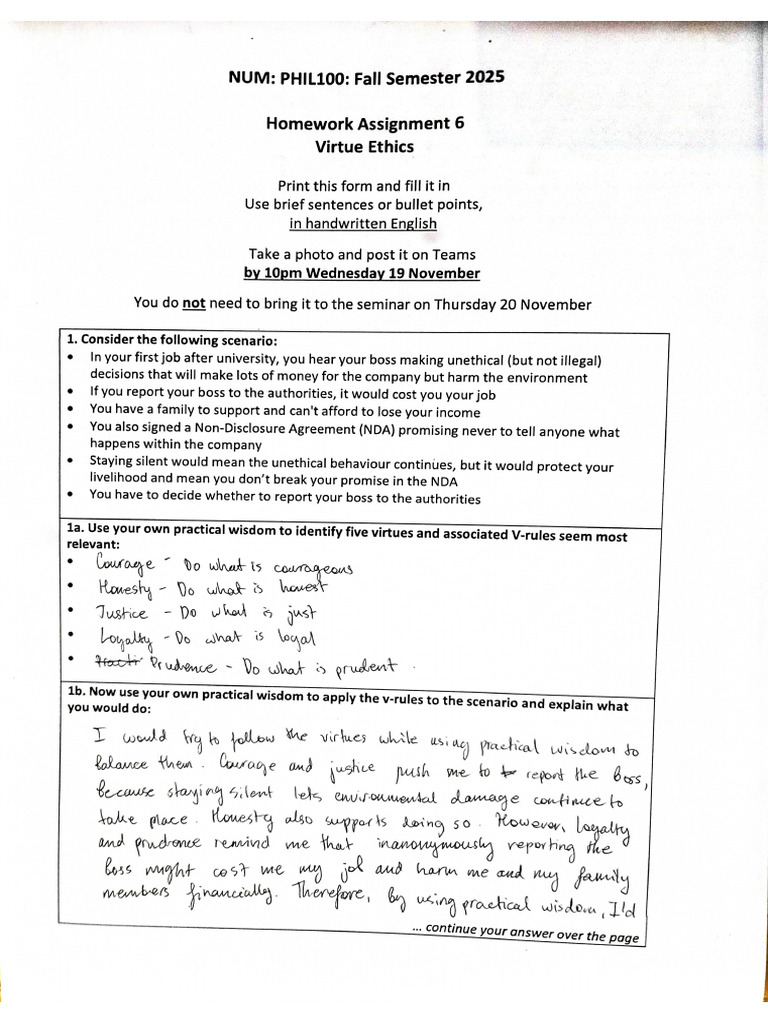 NUM: PHIL100: Fall Semester 2025
Homework Assignment 6
Virtue Ethics
Print this form and fill it in
Use brief sentences or bullet points,
in handwritten English
Take a photo and post it on Teams
by 10pm Wednesday 19 November
You do not need to bring it to the seminar on Thursday 20 November
1. Consider the following scenario:
• In your first job after university, you hear your boss making unethical (but not illegal)
decisions that will make lots of money for the company but harm the environment
• If you report your boss to the authorities, it would cost you your job
• You have a family to support and can't afford to lose your income
• You also signed a Non-Disclosure Agreement (NDA) promising never to tell anyone what
happens within the company
• Staying silent would mean the unethical behaviour continues, but it would protect your
livelihood and mean you don't break your promise in the NDA
• You have to decide whether to report your boss to the authorities
1a. Use your own practical wisdom to identify five virtues and associated V-rules seem most
relevant:
• Courage - Do what is courageous
• Honesty - Do what is honest
• Justice - Do what is just
• Loyalty - Do what is loyal
• Prudence - Do what is prudent.
1b. Now use your own practical wisdom to apply the v-rules to the scenario and explain what
you would do:
I would try to follow the virtues while using practical wisdom to
balance them. Courage and justice push me to report the boss,
because staying silent lets environmental damage continue to
take place. Honesty also supports doing so. However, loyalty
and prudence remind me that inanonymously reporting the
boss might cost me my job and harm me and my family
members financially. Therefore, by using practical wisdom, I'd
... continue your answer over the page